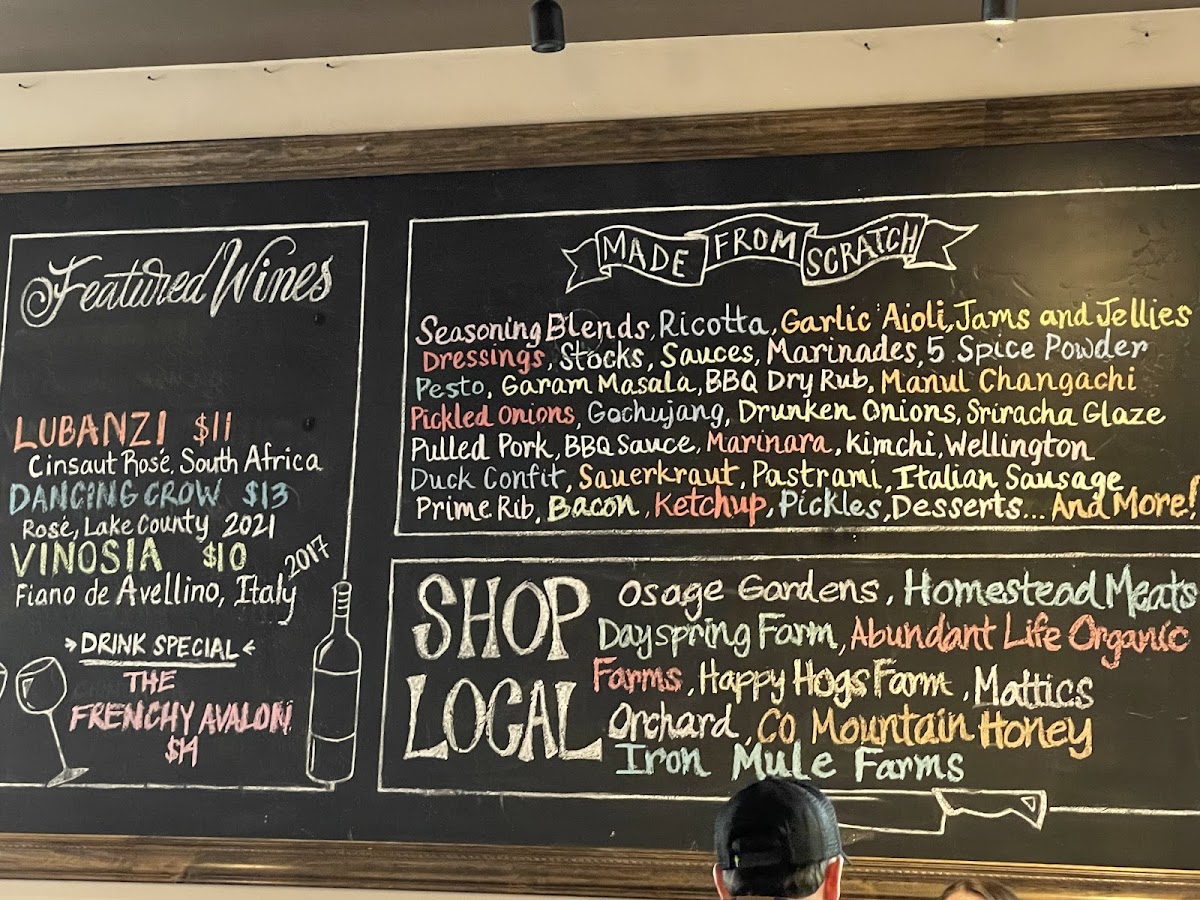 Featured Wines
LUBANZI $11
Cinsaut Rosé, South Africa
DANCING CROW $13
Rosé, Lake County 2021
VINOSIA $10
Fiano de Avellino, Italy 2017
DRINK SPECIAL
THE
FRENCHY AVALON
$14
MADE FROM SCRATCH
Seasoning Blends, Ricotta, Garlic Aioli, Jams and Jellies
Dressings, Stocks, Sauces, Marinades, 5 Spice Powder
Pesto, Garam Masala, BBQ Dry Rub, Manul Changachi
Pickled Onions, Gochujang, Drunken Onions, Sriracha Glaze
Pulled Pork, BBQ Sauce, Marinara, Kimchi, Wellington
Duck Confit, Sauerkraut, Pastrami, Italian Sausage
Prime Rib, Bacon, Ketchup, Pickles, Desserts... And More!
SHOP
LOCAL
Osage Gardens, Homestead Meats
Dayspring Farm, Abundant Life Organic
Farms, Happy Hogs Farm, Mattics
Orchard, CO Mountain Honey
Iron Mule Farms